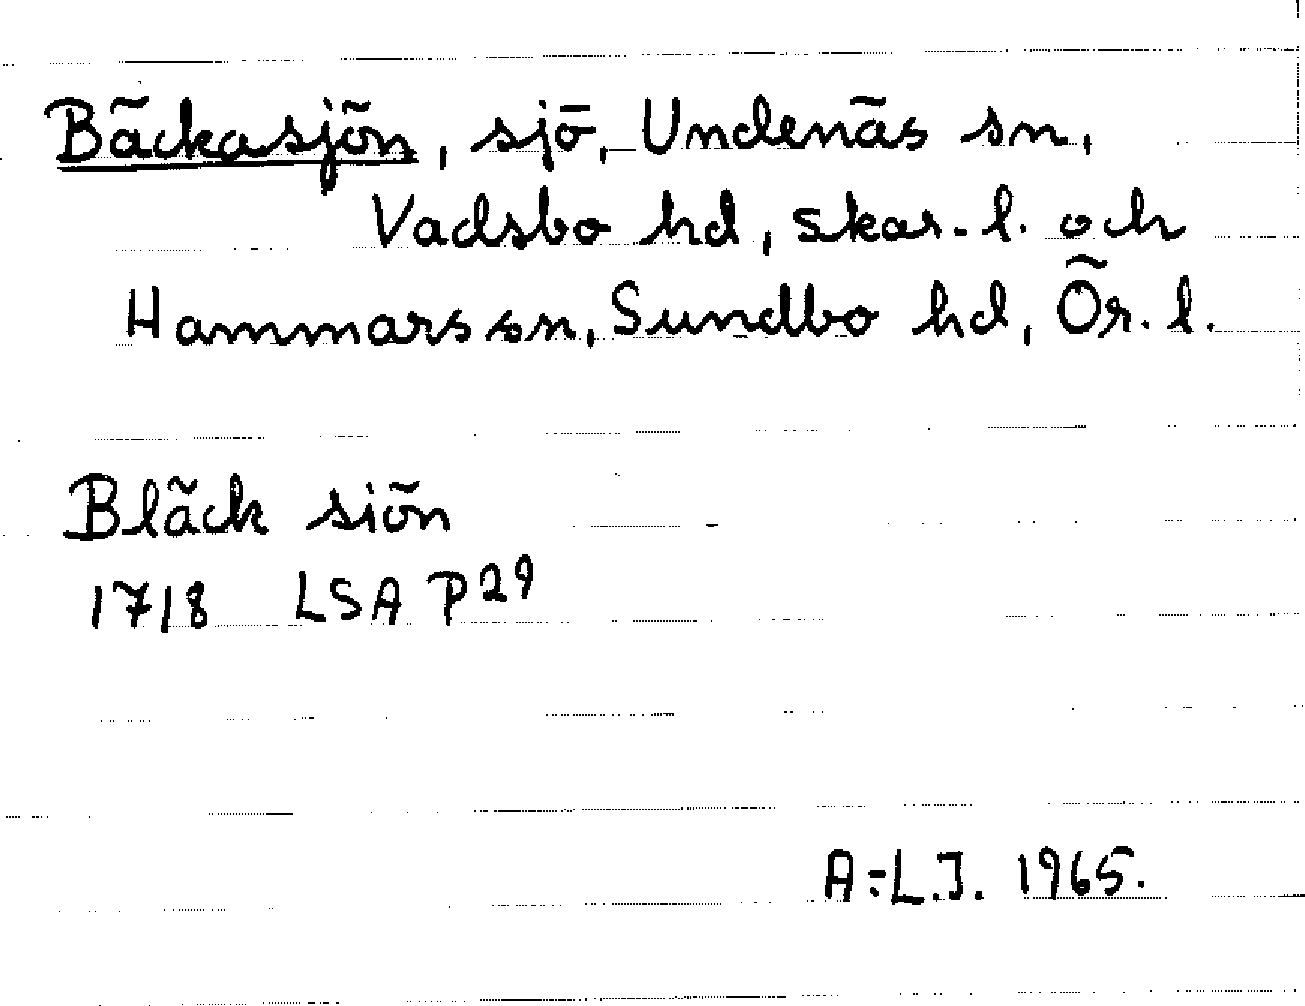 Bäckasjön, sjö, Undenäs sn,
Vadsbo hd, Skar. l. och
Hammars sn, Sundbo hd, Ör. l.
Bläck siön
1718 LSA P29
A:-L.J. 1965.